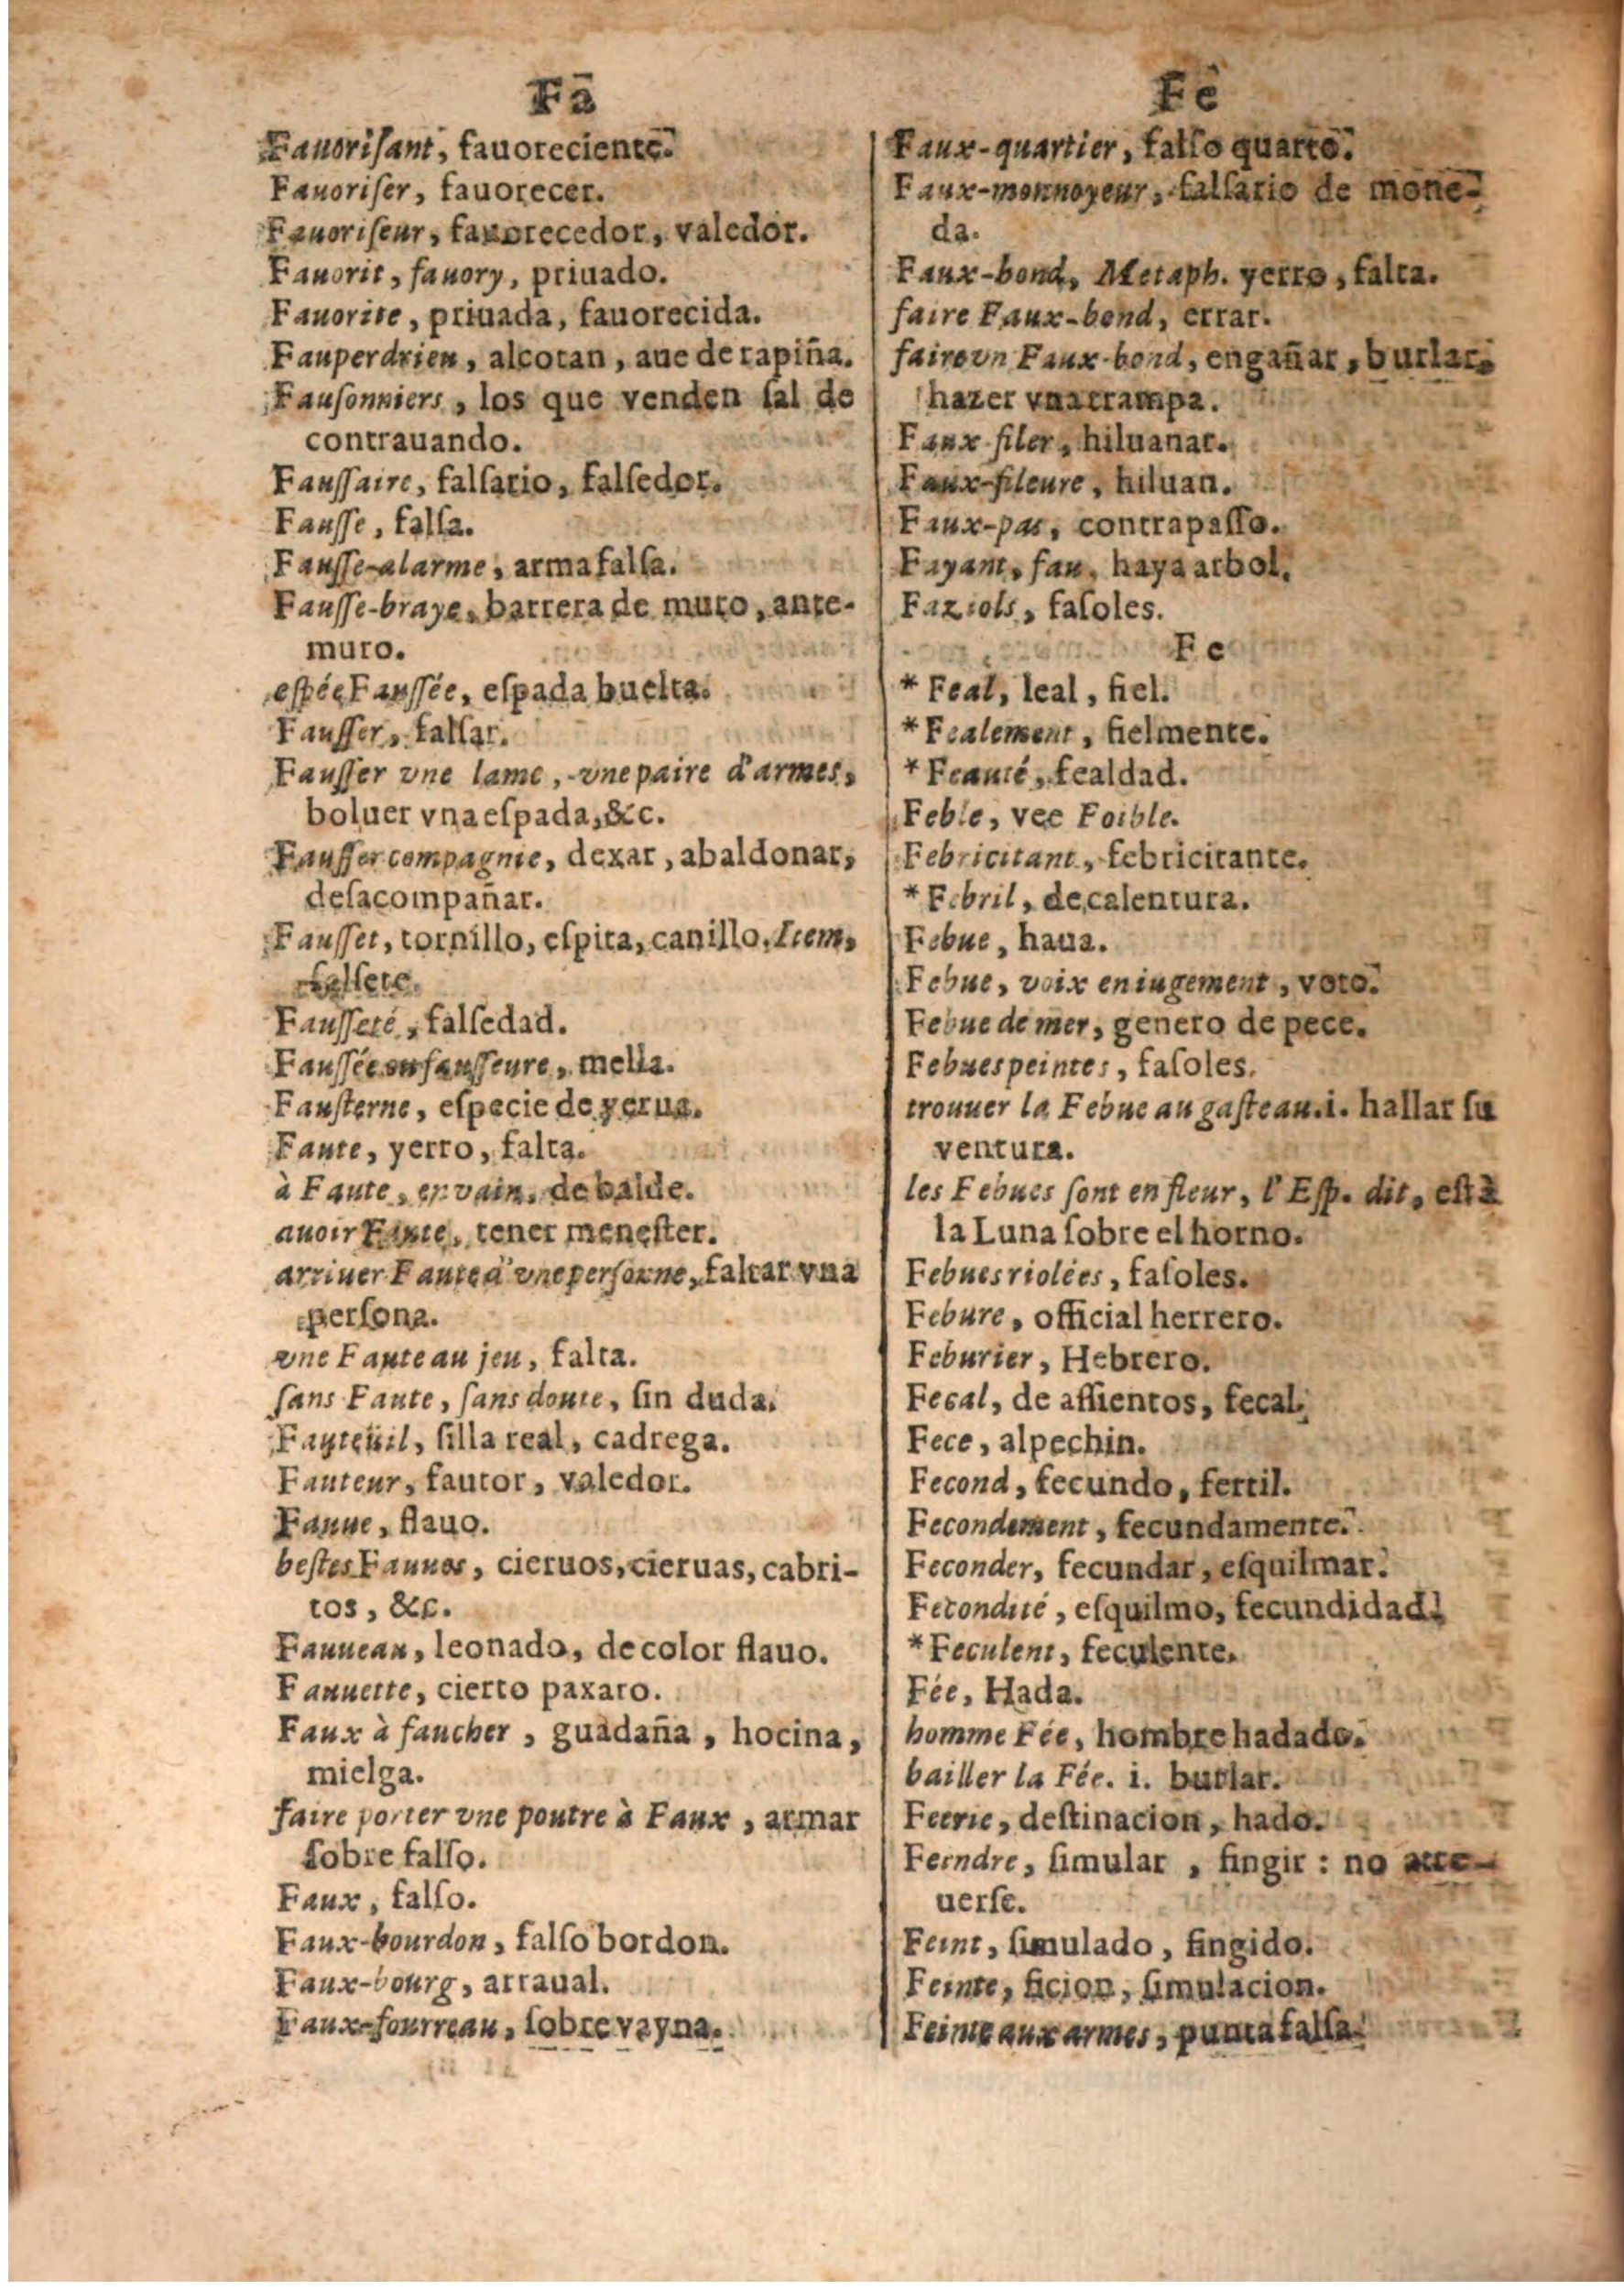 Fa
Fauoriſant, fauoreciente.
Fauoriſer, fauorecer.
Fauoriſeur, fauorecedor, valedor.
Fauorit, fauory, priuado.
Fauorite, priuada, fauorecida.
Fauperdrieu, alcotan, aue de rapiña.
Fauſonniers, los que venden ſal de
contrauando.
Fauſſaire, falſario, falſedor.
Fauſſe, falſa.
Fauſſe-alarme, arma falſa.
Fauſſe-braye, barrera de muro, ante-
muro.
eſpée Fauſſée, eſpada buelta.
Fauſſer, falſar.
Fauſſer vne lame, vne paire d'armes,
boluer vna eſpada, &c.
Fauſſer compagnie, dexar, abaldonar,
deſacompañar.
Fauſſet, tornillo, eſpita, canillo. Item,
falſete.
Fauſſeté, falſedad.
Fauſſée ou fauſſeure, mella.
Fauſterne, eſpecie de yerua.
Faute, yerro, falta.
à Faute, en vain, de balde.
auoir Faute, tener meneſter.
arriuer Faute à vne perſonne, faltar vna
perſona.
vne Faute au jeu, falta.
ſans Faute, ſans doute, ſin duda.
Fauteüil, ſilla real, cadrega.
Fauteur, fautor, valedor.
Fauue, flauo.
beſtes Fauues, cieruos, cieruas, cabri-
tos, &c.
Fauueau, leonado, de color flauo.
Fauuette, cierto paxaro.
Faux à faucher, guadaña, hocina,
mielga.
faire porter vne poutre à Faux, armar
ſobre falſo.
Faux, falſo.
Faux-bourdon, falſo bordon.
Faux-bourg, arraual.
Faux-fourreau, ſobre vayna.
Fe
Faux-quartier, falſo quarto.
Faux-monnoyeur, falſario de mone-
da.
Faux-bond, Metaph. yerro, falta.
faire Faux-bond, errar.
faire vn Faux-bond, engañar, burlar,
hazer vna trampa.
Faux filer, hiluanar.
Faux-fileure, hiluan.
Faux-pas, contrapaſſo.
Fayant, fau, haya arbol.
Faziols, faſoles.
Fe
*Feal, leal, fiel.
*Fealement, fielmente.
*Feauté, fealdad.
Feble, vee Foible.
Febricitant, febricitante.
*Febril, de calentura.
Febue, haua.
Febue, voix en iugement, voto.
Febue de mer, genero de pece.
Febues peintes, faſoles.
trouuer la Febue au gaſteau. i. hallar ſu
ventura.
les Febues ſont en fleur, l'Eſp. dit, eſtà
la Luna ſobre el horno.
Febues riolées, faſoles.
Febure, official herrero.
Feburier, Hebrero.
Fecal, de aſſientos, fecal.
Fece, alpechin.
Fecond, fecundo, fertil.
Fecondement, fecundamente.
Feconder, fecundar, eſquilmar.
Fecondité, eſquilmo, fecundidad.
*Feculent, feculente.
Fée, Hada.
homme Fée, hombre hadado.
bailler la Fée. i. burlar.
Feerie, deſtinacion, hado.
Feindre, ſimular, fingir: no atre-
uerſe.
Feint, ſimulado, fingido.
Feinte, ficion, ſimulacion.
Feinte aux armes, punta falſa.